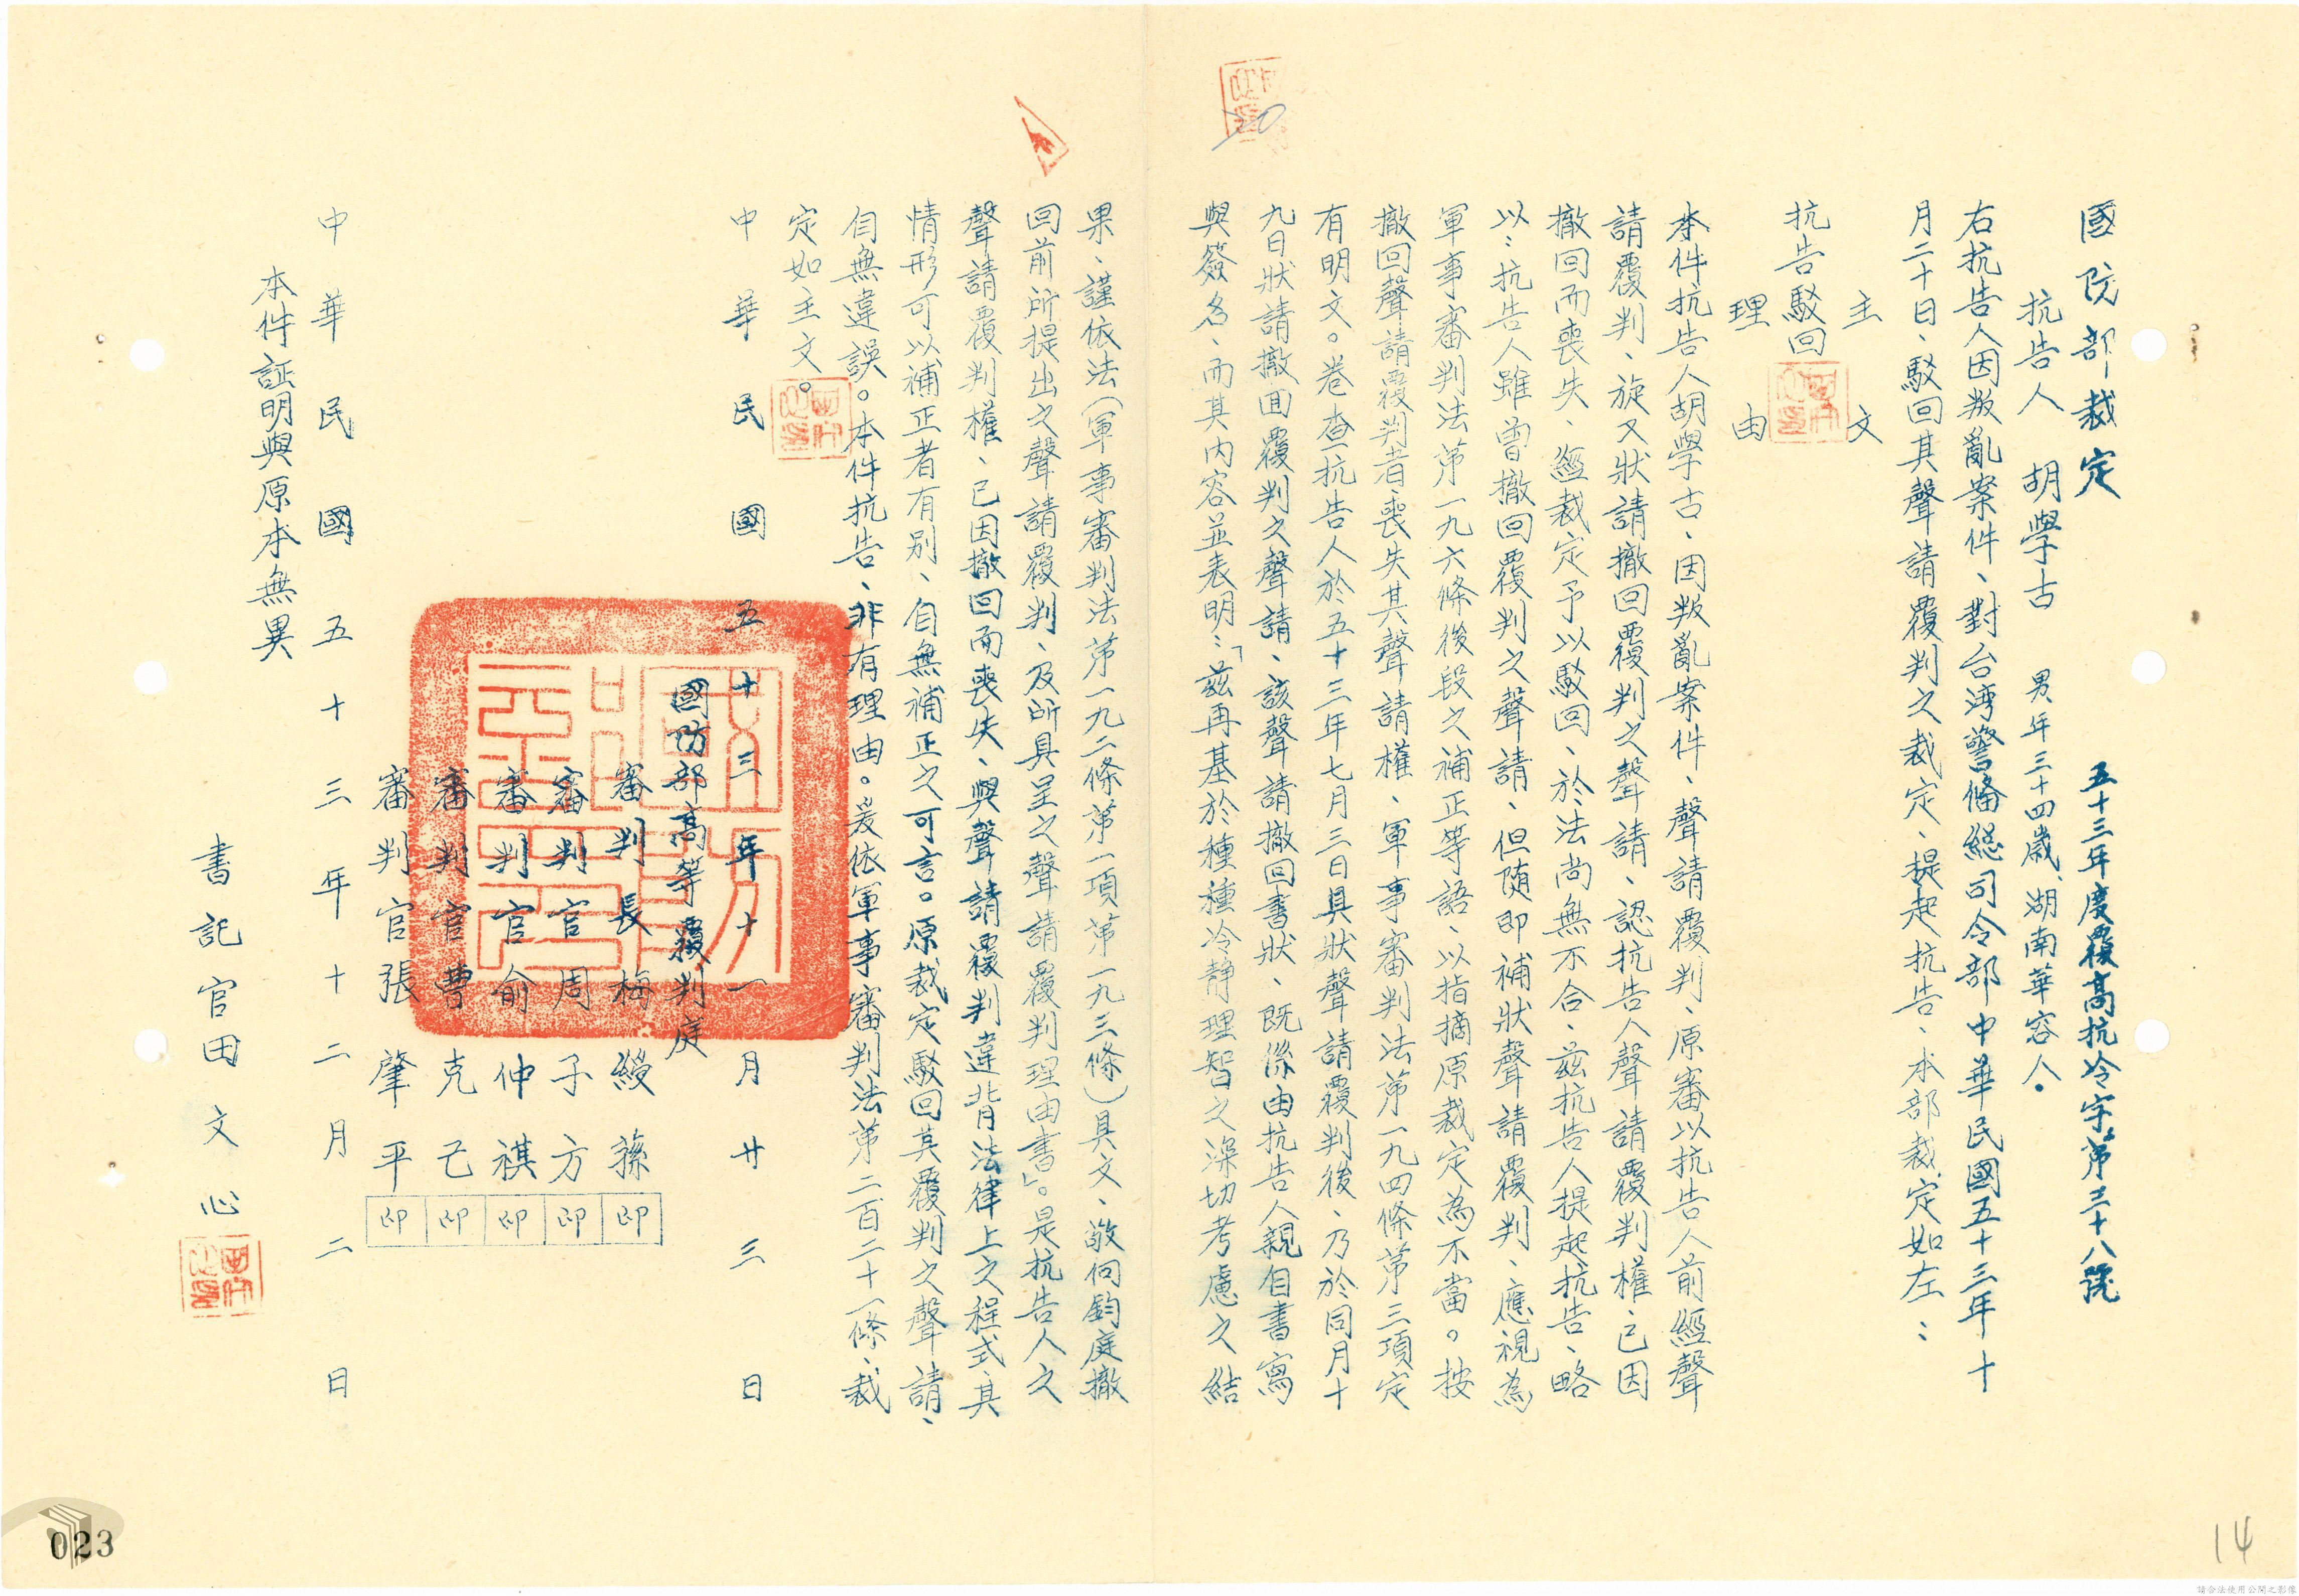 國防部裁定
五十三年度覆高抗冷字第三十八號
抗告人　胡學古　男年三十四歲、湖南華容人。
右抗告人因叛亂案件、對台湾警備総司令部中華民國五十三年十
月二十日、駁回其聲請覆判之裁定、提起抗告、本部裁定如左：
主文
抗告駁回
理由
本件抗告人胡學古、因叛亂案件、聲請覆判、原審以抗告人前經聲
請覆判、旋又狀請撤回覆判之聲請、認抗告人聲請覆判權、已因
撤回而喪失、經裁定予以駁回、於法尚無不合、茲抗告人提起抗告、略
以：抗告人雖曾撤回覆判之聲請、但随即補狀聲請覆判、應視為
軍事審判法第一九六條後段之補正等語、以指摘原裁定為不當。按
撤回聲請覆判者喪失其聲請權、軍事審判法第一九四條第三項定
有明文。卷查抗告人於五十三年七月三日具狀聲請覆判後、乃於同月十
九日狀請撤回覆判之聲請、該聲請撤回書狀、既係由抗告人親自書寫
與簽名、而其內容並表明：「茲再基於種種冷静理智之深切考慮之結
果、謹依法（軍事審判法第一九二條第一項第一九三條）具文、敬向鈞庭撤
回前所提出之聲請覆判、及所具呈之聲請覆判理由書」。是抗告人之
聲請覆判權、已因撤回而喪失、與聲請覆判違背法律上之程式、其
情形可以補正者有别、自無補正之可言。原裁定駁回其覆判之聲請、
自無違誤。本件抗告、非有理由。爰依軍事審判法第二百二十一條、裁
定如主文。
中華民國五十三年十一月廿三日
國防部高等覆判庭
審判長梅綬蓀 印
審判官周子方 印
審判官俞仲祺 印
審判官曹克己 印
審判官張肇平 印
中華民國五十三年十二月二日
本件証明與原本無異
書記官田文心
023
14
請合法使用公開之影像